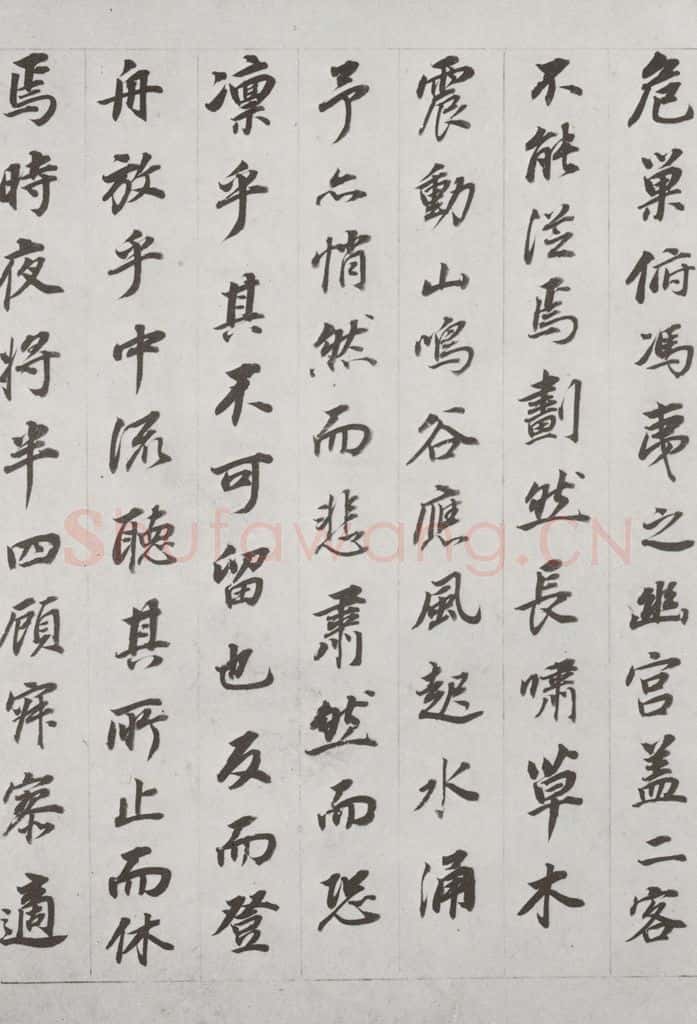 危巢俯馮夷之幽宮蓋二客
不能從焉劃然長嘯草木
震動山鳴谷應風起水涌
予亦悄然而悲肅然而恐
凜乎其不可留也反而登
舟放乎中流聽其所止而休
焉時夜將半四顧寂寥適
Shufawang.CN